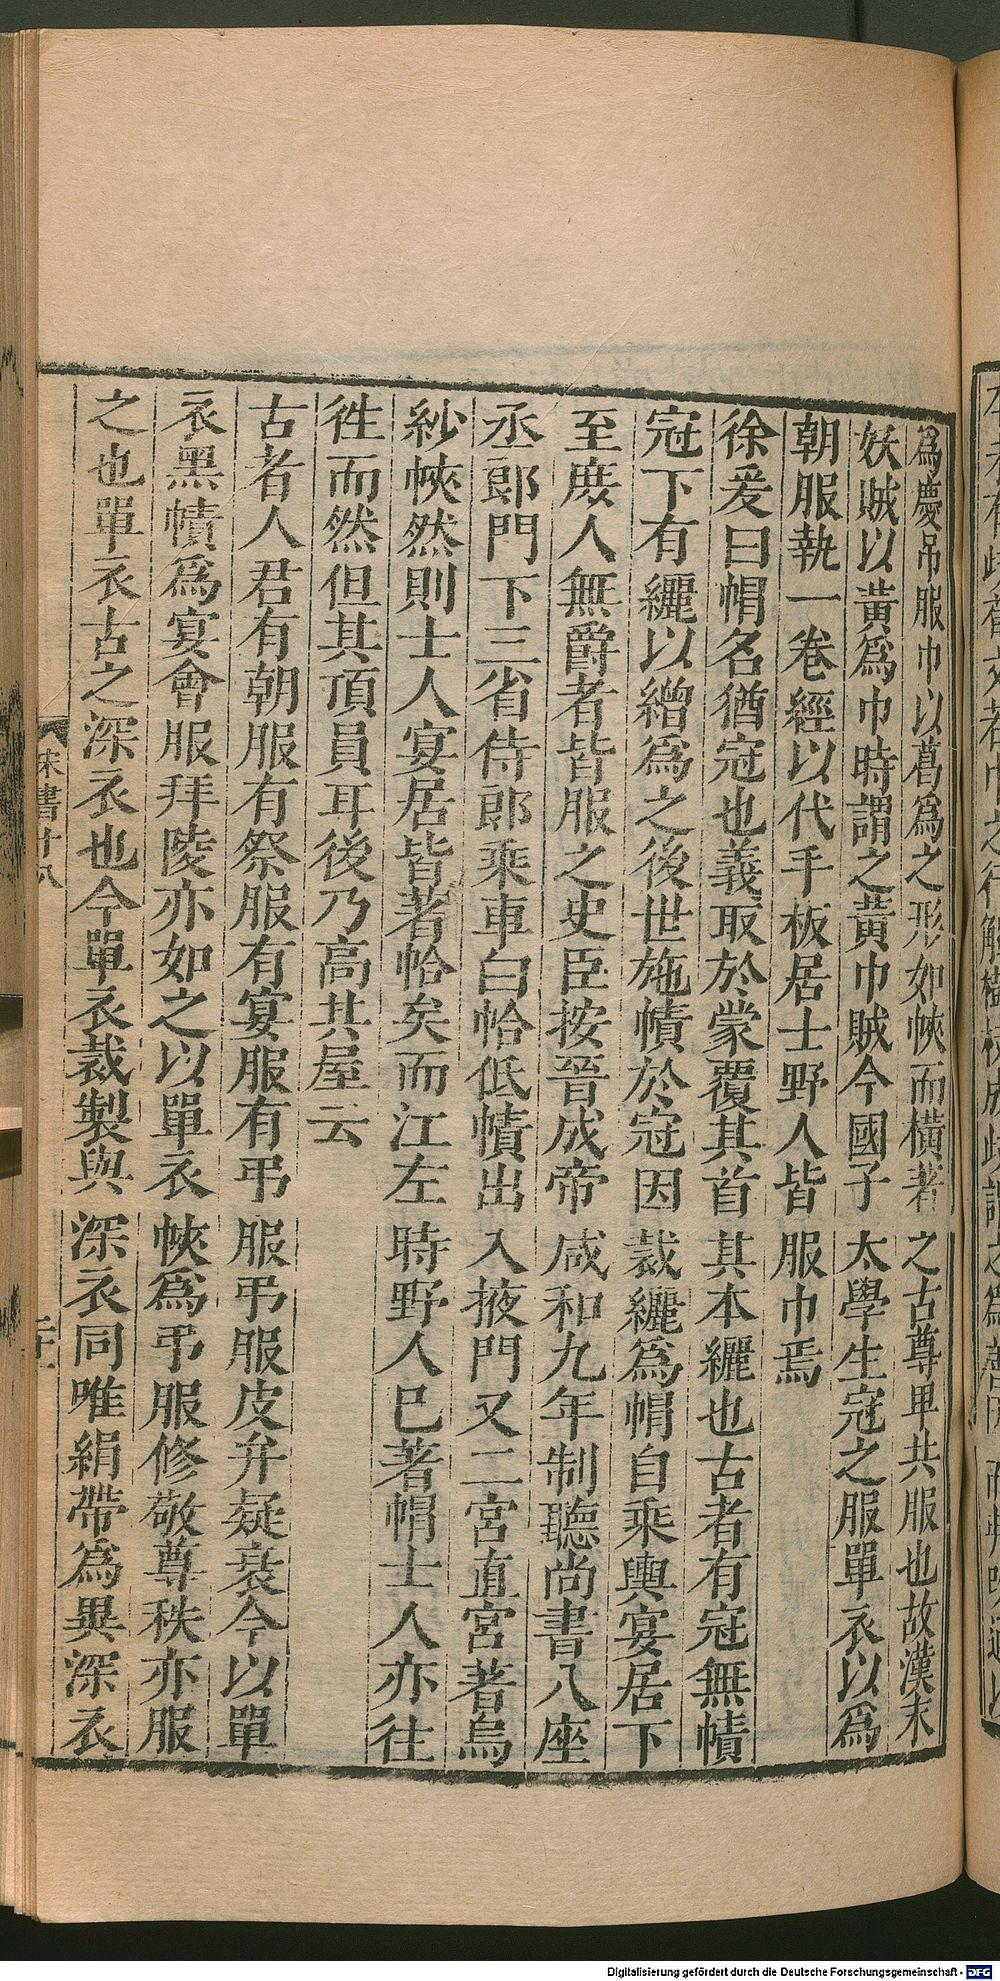 爲慶吊服巾以葛爲之形如㡊而橫著之古尊卑共服也故漢末
妖賊以黄爲巾時謂之黄巾賊今國子太學生冠之服單衣以爲
朝服執一卷經以代手板居士野人皆服巾焉
徐爰曰帽名猶冠也義取於蒙覆其首其本纚也古者有冠無幘
冠下有纚以繒爲之後世施幘於冠因裁纚爲帽自乘輿宴居下
至庻人無爵者皆服之史臣按晉成帝咸和九年制聽尚書八座
丞郎門下三省侍郎乘車白帢低幘出入掖門又二宮直宮著烏
紗㡊然則士人宴居皆著帢矣而江左時野人已著帽士人亦往
徃而然但其頂員耳後乃高其屋云
古者人君有朝服有祭服有宴服有弔服弔服皮弁疑衰今以單
衣黑幘爲宴會服拜陵亦如之以單衣㡊爲弔服修敬尊秩亦服
之也單衣古之深衣也今單衣裁製與深衣同唯絹帶爲異深衣
宋書十八
Digitalisierung gefördert durch die Deutsche Forschungsgemeinschaft - DFG